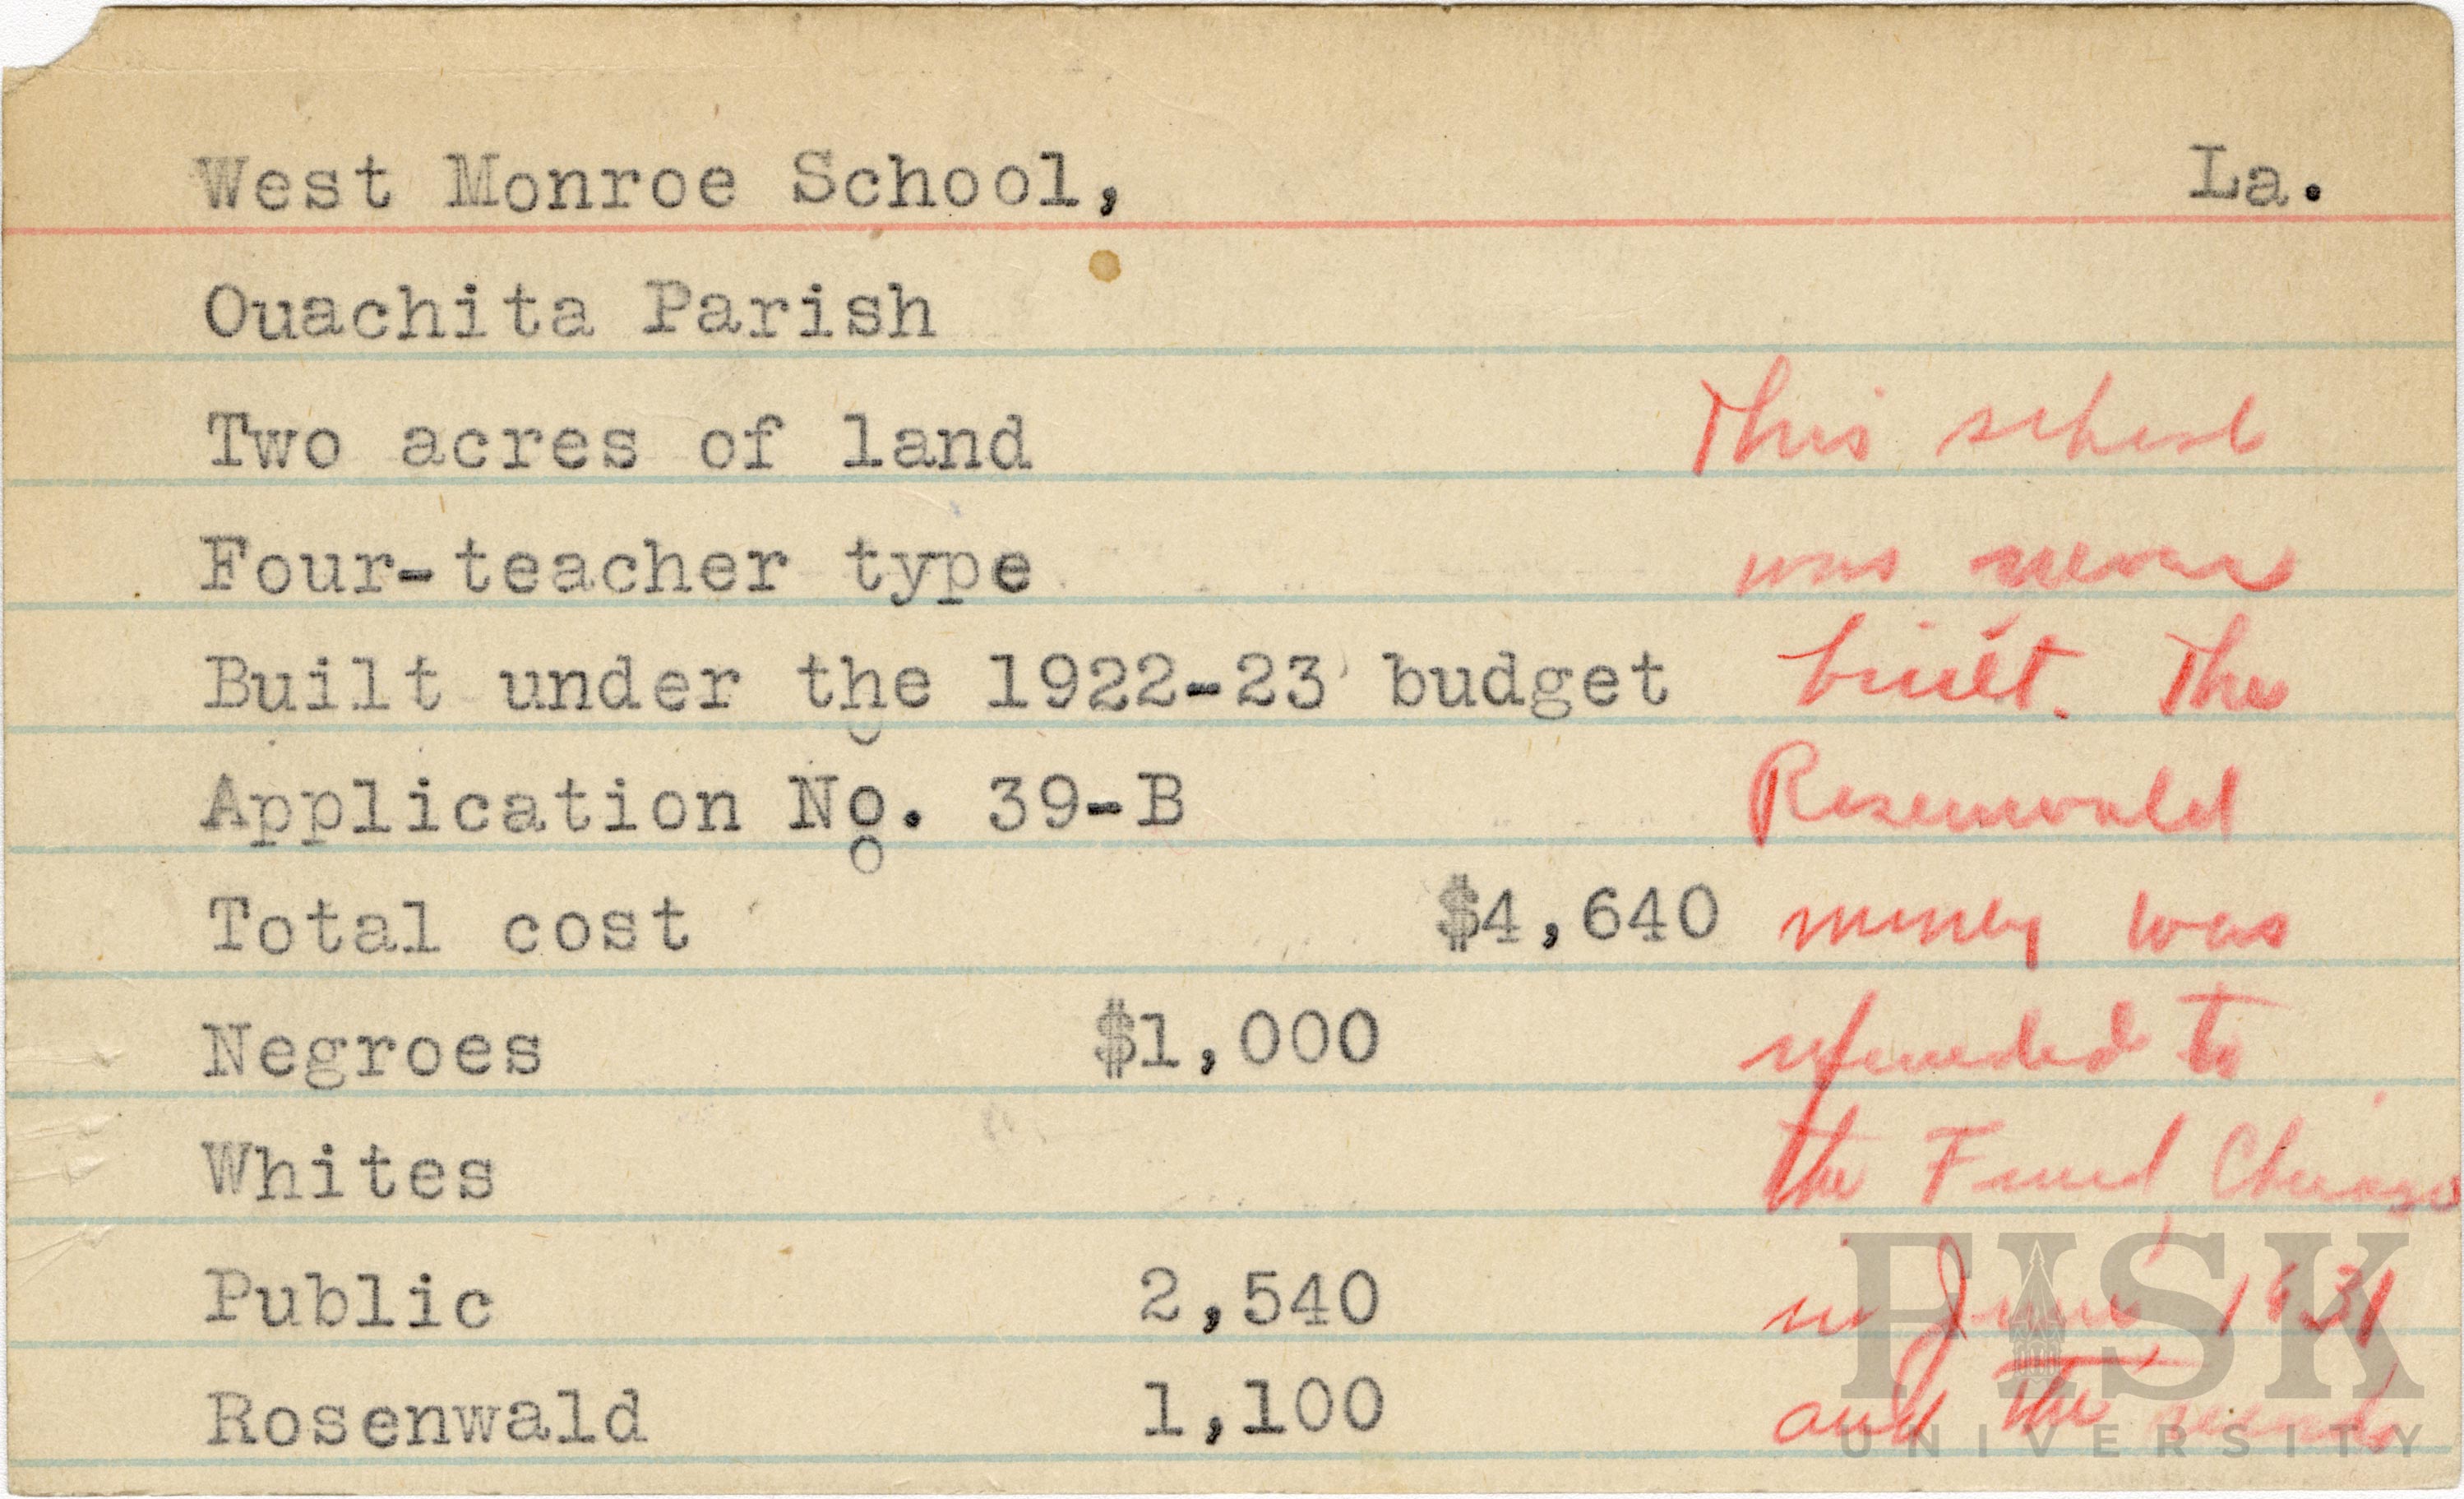 West Monroe School, La.
Ouachita Parish
Two acres of land
Four-teacher type
Built under the 1922-23 budget
Application No. 39-B
Total cost $4,640
Negroes $1,000
Whites
Public 2,540
Rosenwald 1,100
This school
was never
built. The
Rosenwald
money was
refunded to
the Fund Chicago
in June 1931
and the records
FISK
UNIVERSITY